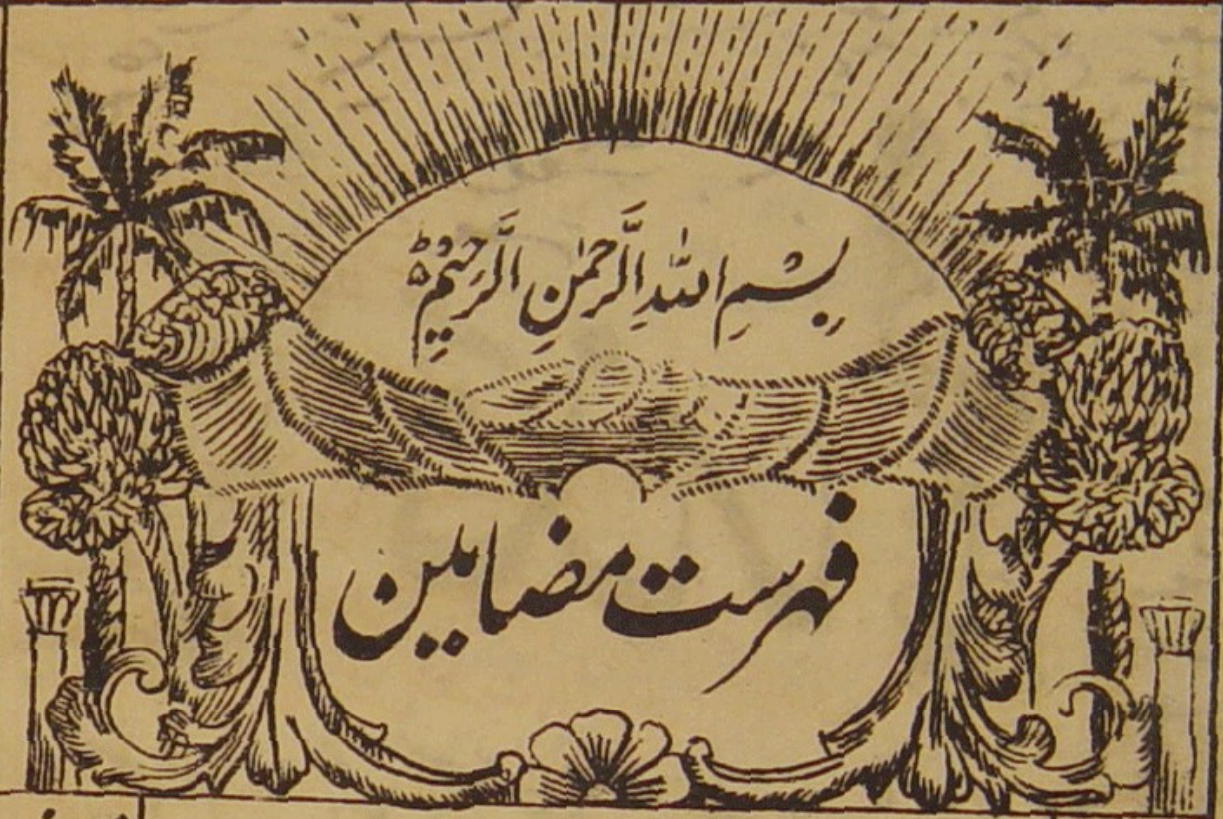 بِسْمِ اللهِ الرَّحْمٰنِ الرَّحِیْمِ ؕ
فہرست مضامین